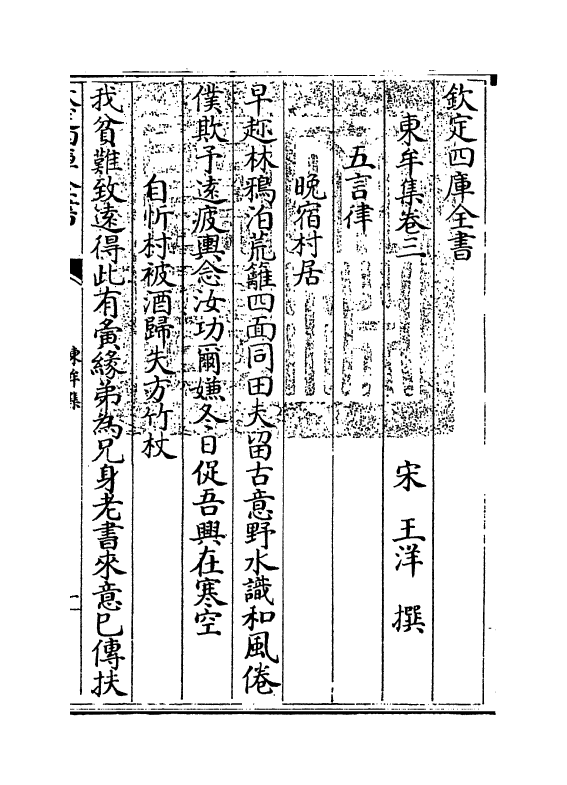 欽定四庫全書
東牟集卷三
宋 王洋 撰
五言律
晚宿村居
早趂林鴉泊荒籬四面同田夫留古意野水識和風倦
僕欺予遠疲輿念汝功爾嫌冬日促吾興在寒空
自忻村被酒歸失方竹杖
我貧難致遠得此有夤緣弟為兄身老書來意已傳扶
東牟集